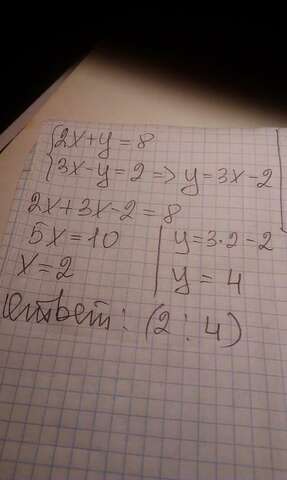 2x+y=8
3x-y=2 => y=3x-2
2x+3x-2=8
5x=10 | y=3·2-2
x=2 | y=4
Ответ: (2;4)